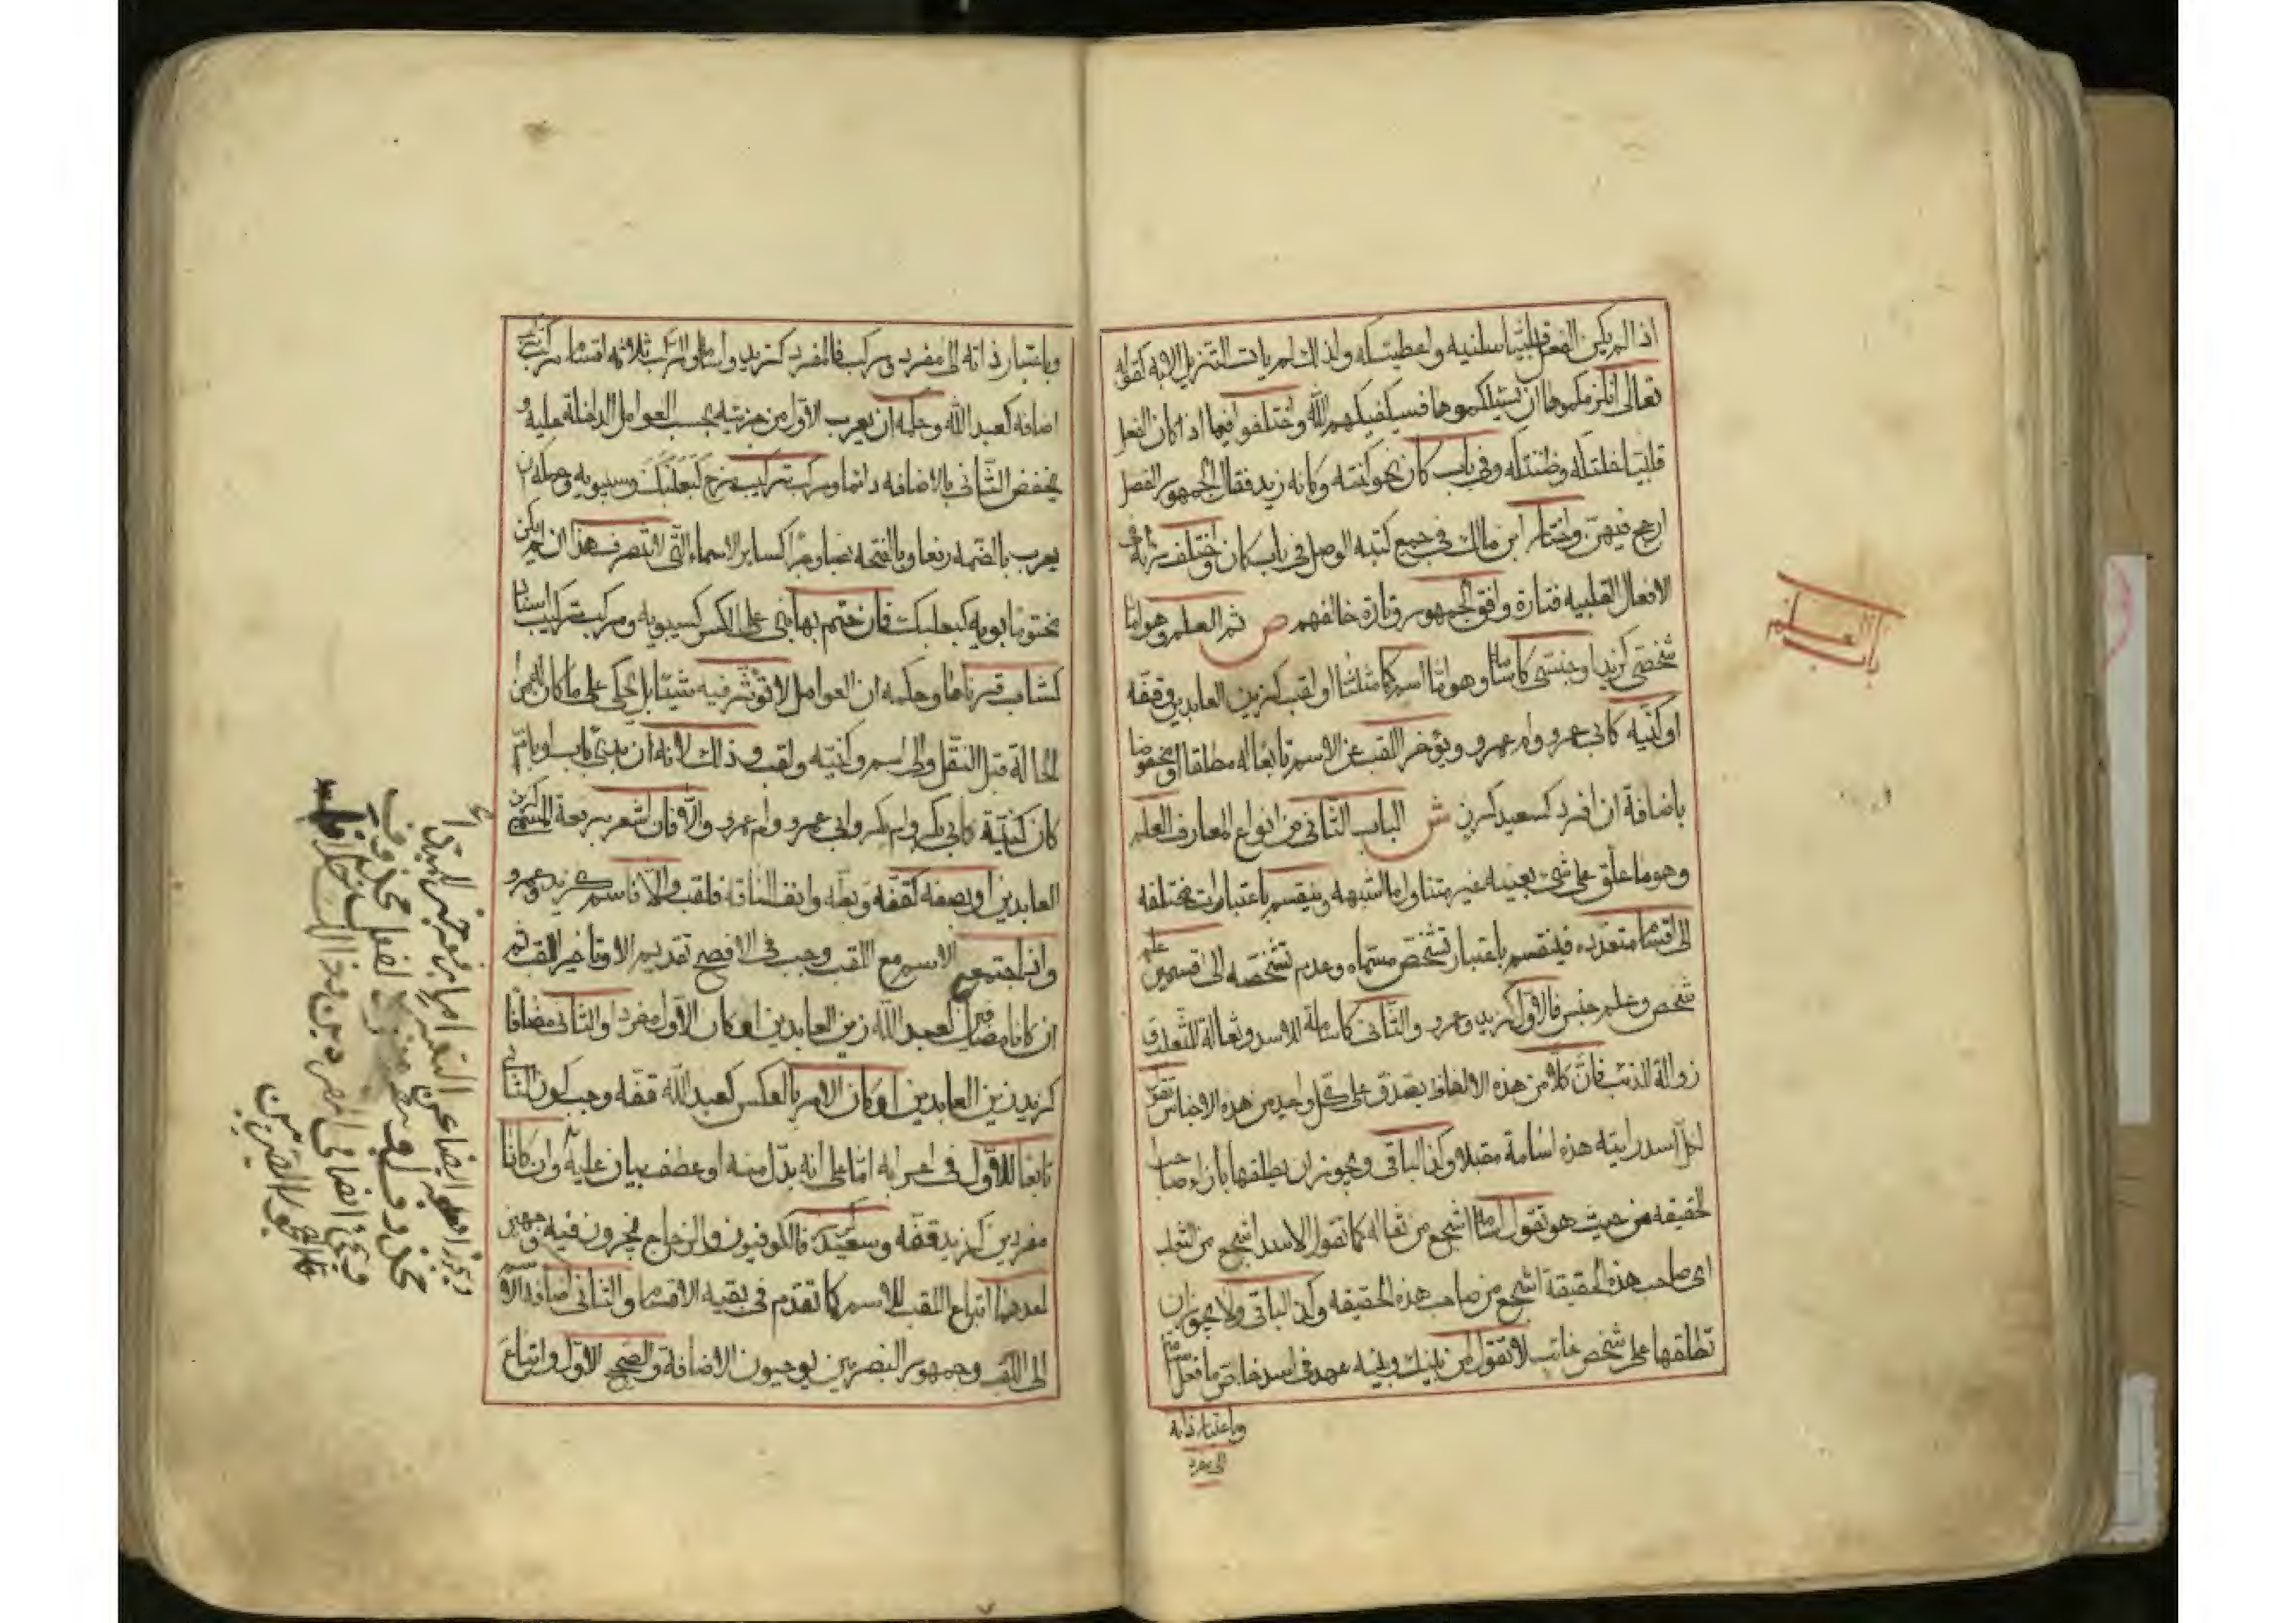 اذا لم يكن الفعل قلبيا سلنيه واعطيتكه ولذلك لم يات التنزيل الا به كقوله
تعالى انلزمكموها ان يسئلكموها فسيكفيكهم الله واختلفوا فيما اذا كان الفعل
قلبيا خلتكه وظننتكه وفي باب كان نحو كنته وكانه زيد فقال الجمهور الفصل
ارجح فيهن واختار ابن مالك في جميع كتبه الوصل في باب كان واختلف رأيه في
الافعال القلبيه فتارة وافق الجمهور وتارة خالفهم ص ثم العلم وهو اما
شخصي كزيد او جنسي كاسامة وهو اما اسم كما مثلنا او لقب كزين العابدين وقفّه
او كنيه كابي عمرو وام عمرو ويؤخر اللقب عن الاسم تابعا له مطلقا او مخفوضا
باضافة ان افرد كسعيد كرز ش الباب الثاني من انواع المعارف العلم
وهو ما علق على شيء بعينه غير متناول ما اشبهه وينقسم باعتبارات مختلفه
الى اقسام متعدده فينقسم باعتبار تشخص مسماه وعدم تشخصه الى قسمين علم
شخص وعلم جنس فالاول كزيد وعمرو والثاني كاسامة للاسد وثعالة للثعلب و
ذوالة للذئب فان كلا من هذه الالفاظ يصدق على كل واحد من هذه الاجناس تقول
لكل اسد رايته هذه اسامة مقبلا وكذا الباقي ويجوز ان يطلقها بازاء صاحب
الحقيقه من حيث هو تقول اسامة اشجع من ثعاله كما تقول الاسد اشجع من الثعلب
اي صاحب هذه الحقيقة اشجع من صاحب هذه الحقيقه وكذا الباقي ولا يجوز ان
تطلقها على شخص غائب لا تقول لمن بينك وبينه عهد في اسد خاص ما فعل اسامة
وباعتبار ذاته
الى مفرد
باب
العلم
وباعتبار ذاته الى مفرد ومركب فالمفرد كزيد واسامة والمركب ثلاثه اقسام مركب تركيب
اضافه كعبد الله وحكمه ان يعرب الاول من جزئيه بحسب العوامل الداخلة عليه و
يخفض الثاني بالاضافه دائما ومركب تركيب مزج كبعلبك وسيبويه وحكمه ان
يعرب بالضمه رفعا وبالفتحه نصبا وجرا كسائر الاسماء التي لا تنصرف هذا ان لم يكن
مختوما بويه كبعلبك فان ختم بها بني على الكسر كسيبويه ومركب تركيب اسناد
كشاب قرناها وحكمه ان العوامل لا تؤثر فيه شيئا بل يحكى على ما كان عليه من
الحالة قبل النقل والى اسم وكنيه ولقب وذلك لانه ان بدئ باب او بام
كان كنية كابي بكر وام بكر وابي عمرو وام عمرو والا فان اشعر برفعة المسمى كزين
العابدين او بضعه كقفّه وبطه وانف الناقة فلقب والا فاسم كزيد وعمرو
واذا اجتمع الاسم مع اللقب وجب في الافصح تقديم الاسم وتاخير اللقب ثم
ان كانا مضافين كعبد الله زين العابدين او كان الاول مفردا والثاني مضافا
كزيد زين العابدين او كان الامر بالعكس كعبد الله قفه وجب كون الثاني
تابعا للاول في اعرابه اما على انه بدل منه او عطف بيان عليه وان كانا
مفردين كزيد قفه وسعيد كرز فالكوفيون والزجاج يجيزون فيه وجهين
احدهما اتباع اللقب للاسم كما تقدم في بقيه الاقسام والثاني اضافه الاسم
الى اللقب وجمهور البصريين يوجبون الاضافة والصحيح الاول واتباع